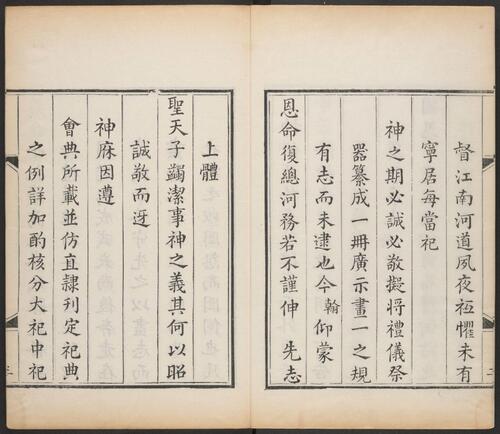 督江南河道夙夜祗懼未有
寧居每當祀
神之期必誠必敬擬將禮儀祭
器纂成一冊廣示畫一之規
有志而未逮也今翰仰蒙
恩命復總河務若不謹伸 先志
上體
聖天子蠲潔事神之義其何以昭
誠敬而迓
神庥因遵
會典所載並仿直隸刊定祀典
之例詳加酌核分大祀中祀
二
三